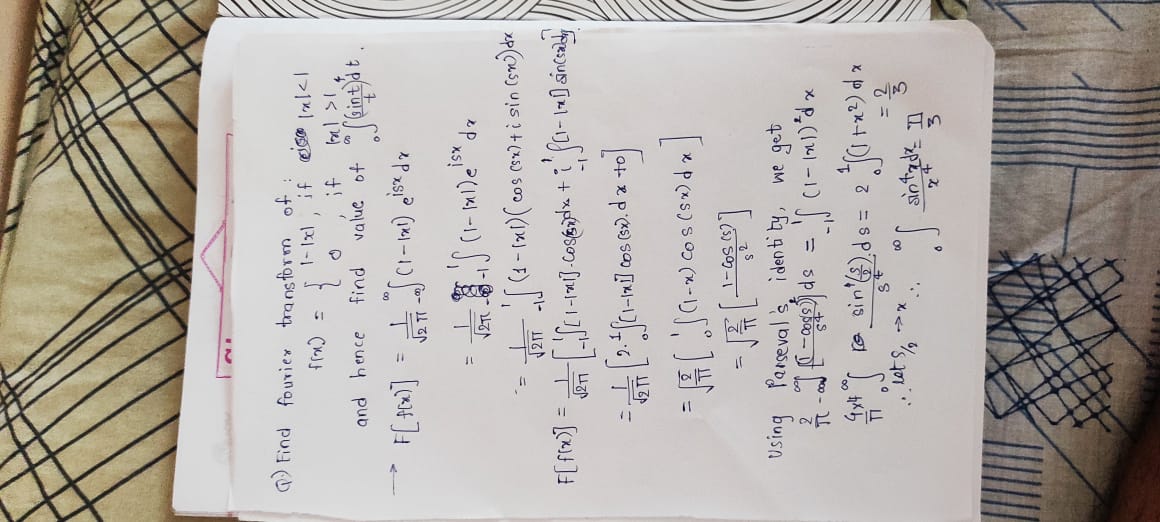 Q) Find fourier transform of :
f(x) = { 1-|x| , if |x|<1
0 if |x|>1
and hence find value of ₀∫^∞ (sint/t)⁴ dt.
→ F[f(x)] = 1/√2π -∞∫^∞ (1-|x|) e^isx dx
= 1/√2π -1∫^1 (1-|x|) e^isx dx
= 1/√2π -1∫^1 (1-|x|)(cos(sx)+i sin(sx))dx
F[f(x)] = 1/√2π [-1∫^1 [1-|x|].cos(sx)dx + i -1∫^1 [1-|x|] sin(sx)dx]
= 1/√2π [2. ₀∫^1 [1-|x|] cos(sx).dx +0]
= √2/π [₀∫^1 (1-x) cos(sx)dx]
= √2/π [1-cos(s)/s²]
Using Parseval's identity, we get
2/π -∞∫^∞ [(1-cos(s))²/s⁴] ds = -1∫^1 (1-|x|)² dx
4×4/π ₀∫^∞ sin⁴(s/2)/s⁴ ds = 2 ₀∫^1 (1+x²)dx = 2/3
∴ let s/2 → x ∴ ₀∫^∞ sin⁴x dx/x⁴ = π/3